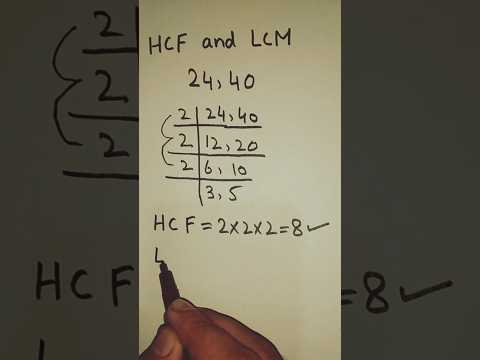 HCF and LCM
24, 40
2 | 24, 40
2 | 12, 20
2 | 6, 10
3, 5
HCF = 2×2×2=8 ✓
L